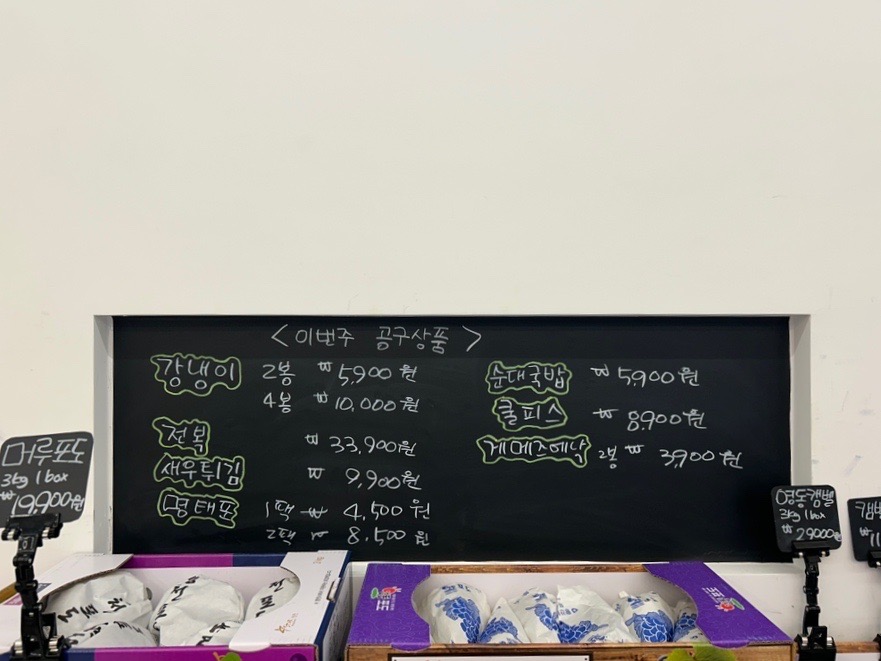 <이번주 공구상품>
강냉이 2봉 ₩5,900원
4봉 ₩10,000원
전복 ₩33,900원
새우튀김 ₩9,900원
명태포 1팩 ₩4,500원
2팩 ₩8,500원
순대국밥 ₩5,900원
쿨피스 ₩8,900원
게메즈에낙 2봉 ₩3,900원
머루포도
3kg 1box
₩19,900원
영동캠벨
3kg 1box
₩29000원
캠벨
₩11
포도